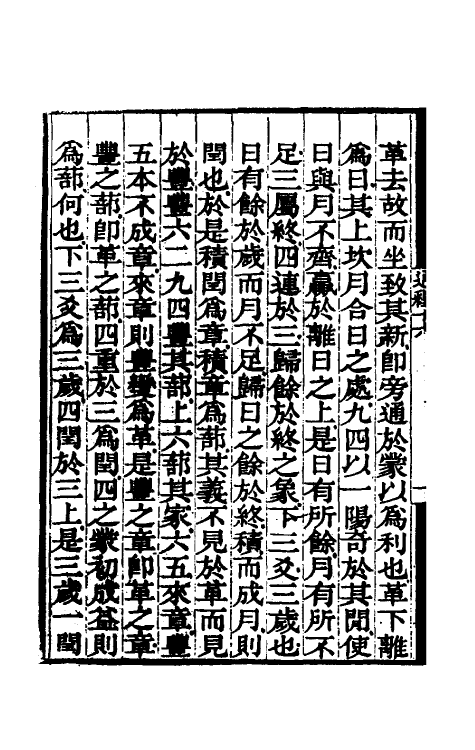 革去故而坐致其新卽旁通於蒙以爲利也革下離
爲日其上坎月合日之處九四以一陽奇於其閒使
日與月不齊贏於離日之上是日有所餘月有所不
足三屬終四連於三歸餘於終之象下三爻三歲也
日有餘於歲而月不足歸日之餘於終積而成月則
閏也於是積閏爲章積章爲蔀其義不見於革而見
於豐豐六二九四豐其蔀上六蔀其家六五來章豐
五本不成章來章則豐變爲革是豐之章卽革之章
豐之蔀卽革之蔀四重於三爲閏四之蒙初成益則
爲蔀何也下三爻爲三歲四閏於三上是三歲一閏
通釋十六